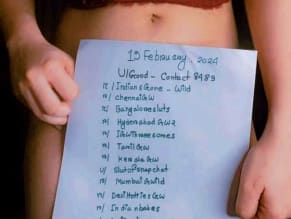 15 February, 2024
U/Good - Contact 8483
r/ Indians Gone - Wild
r/ chennai GW
r/ Bangalore sluts
r/ Hyderabad GW2
r/ IGW threesomes
r/ Tamil GW
r/ Kerala GW
u/ Slutofsnapchat
r/ Mumbai Gwild
r/ Desi Hotties GW
r/ Indian babes